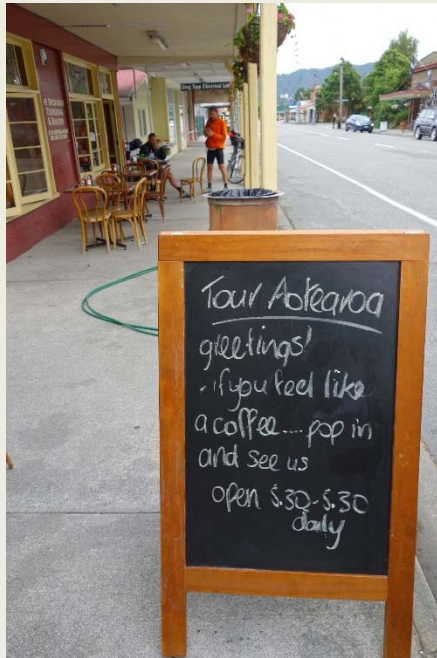 Tour Aotearoa
greetings!
- if you feel like
a coffee.... pop in
and see us
open 5.30-5.30
daily